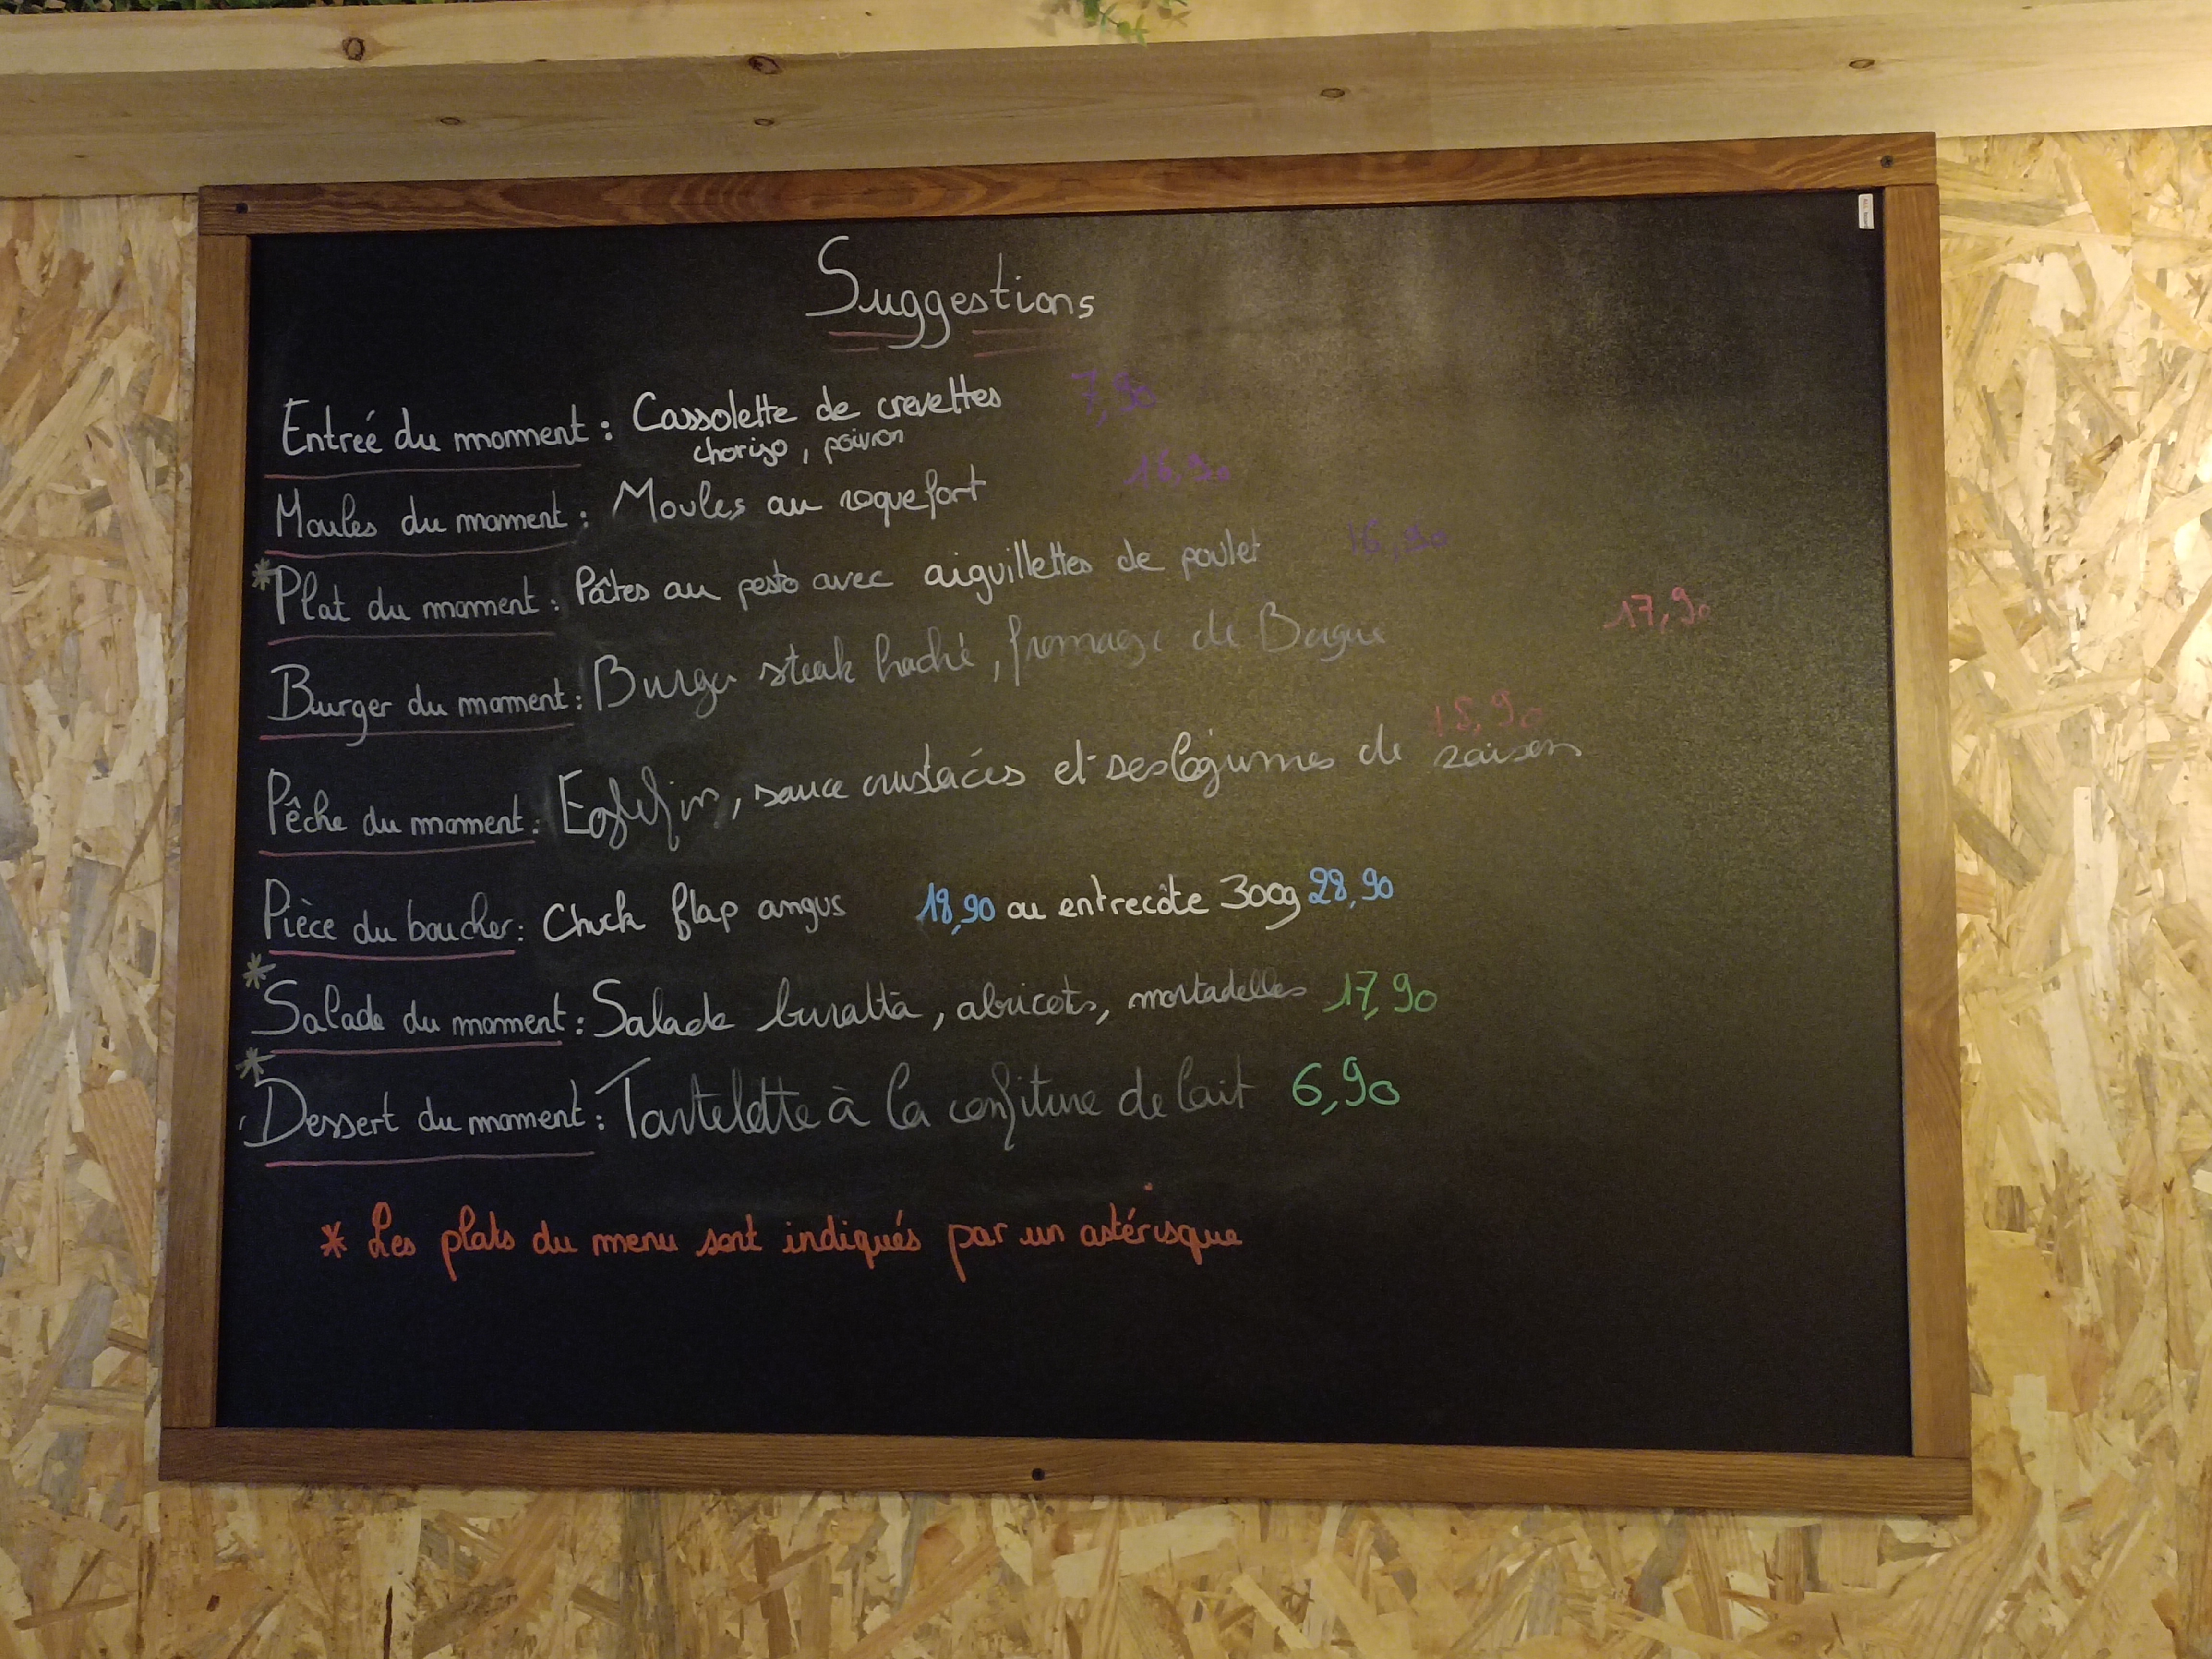 Suggestions
Entreé du moment : Cassolette de crevettes 7,90
chorizo, poivron
Moules du moment : Moules au roquefort 16,90
* Plat du moment : Pâtes au pesto avec aiguillettes de poulet 16,90
Burger du moment : Burger steak haché, fromage de Bergue 17,90
Pêche du moment : Eglefin, sauce crustacés et ses légumes de saison 18,90
Pièce du boucher : Chuck flap angus 18,90 ou entrecôte 300g 28,90
* Salade du moment : Salade buratta, abricots, mortadelles 17,90
* Dessert du moment : Tartelette à la confiture de lait 6,90
* Les plats du menu sont indiqués par un astérisque